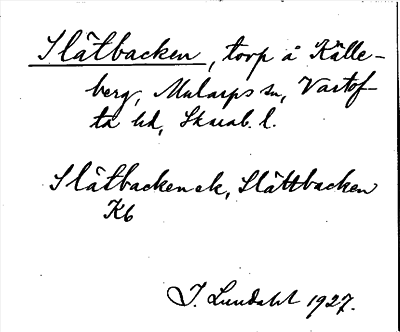 Slätbacken, torp å Källe-
berg, Mularps sn, Vartof-
ta hd, Skarab. l.
Slätbacken ek, Slättbacken
Kb
I. Lundahl 1927.